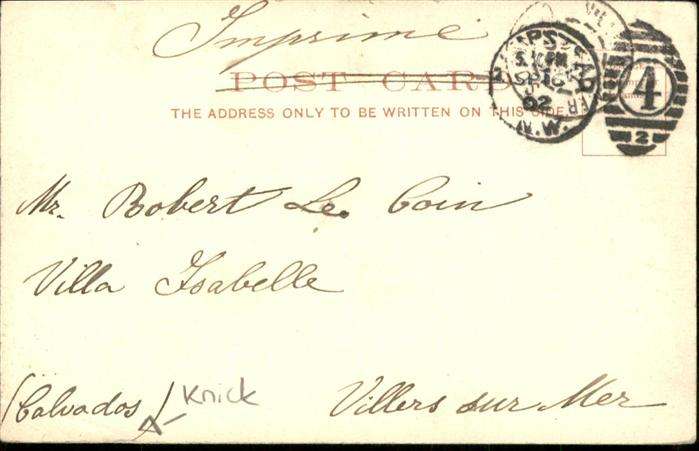 Imprimé
POST CARD
THE ADDRESS ONLY TO BE WRITTEN ON THIS SIDE.
HAMPSTEAD
SP 16
02
N.W.
4
2
Mr. Robert Le Coin
Villa Isabelle
(Calvados) Knick
Villers sur Mer